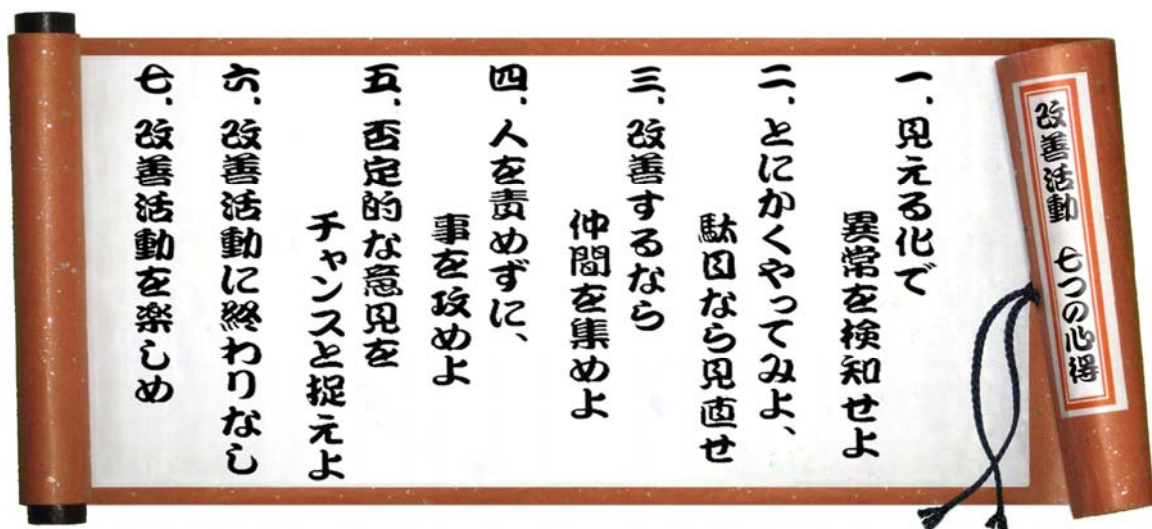 改善活動 七つの心得
一、見える化で
異常を検知せよ
二、とにかくやってみよ、
駄目なら見直せ
三、改善するなら
仲間を集めよ
四、人を責めずに、
事を攻めよ
五、否定的な意見を
チャンスと捉えよ
六、改善活動に終わりなし
七、改善活動を楽しめ